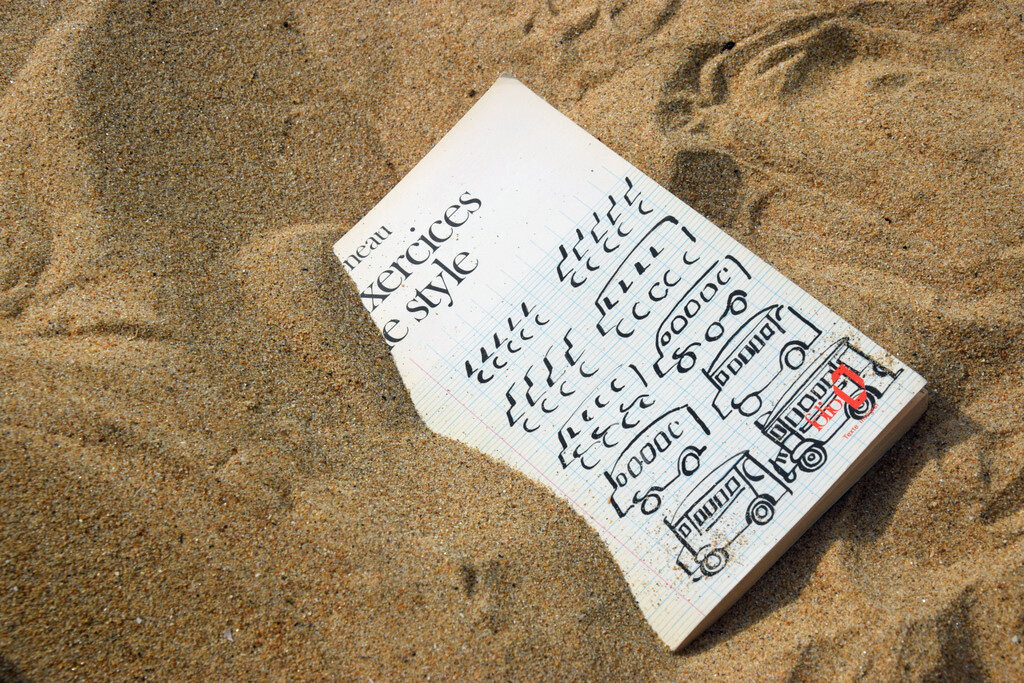 neau
xercices
e style
folio
Texte